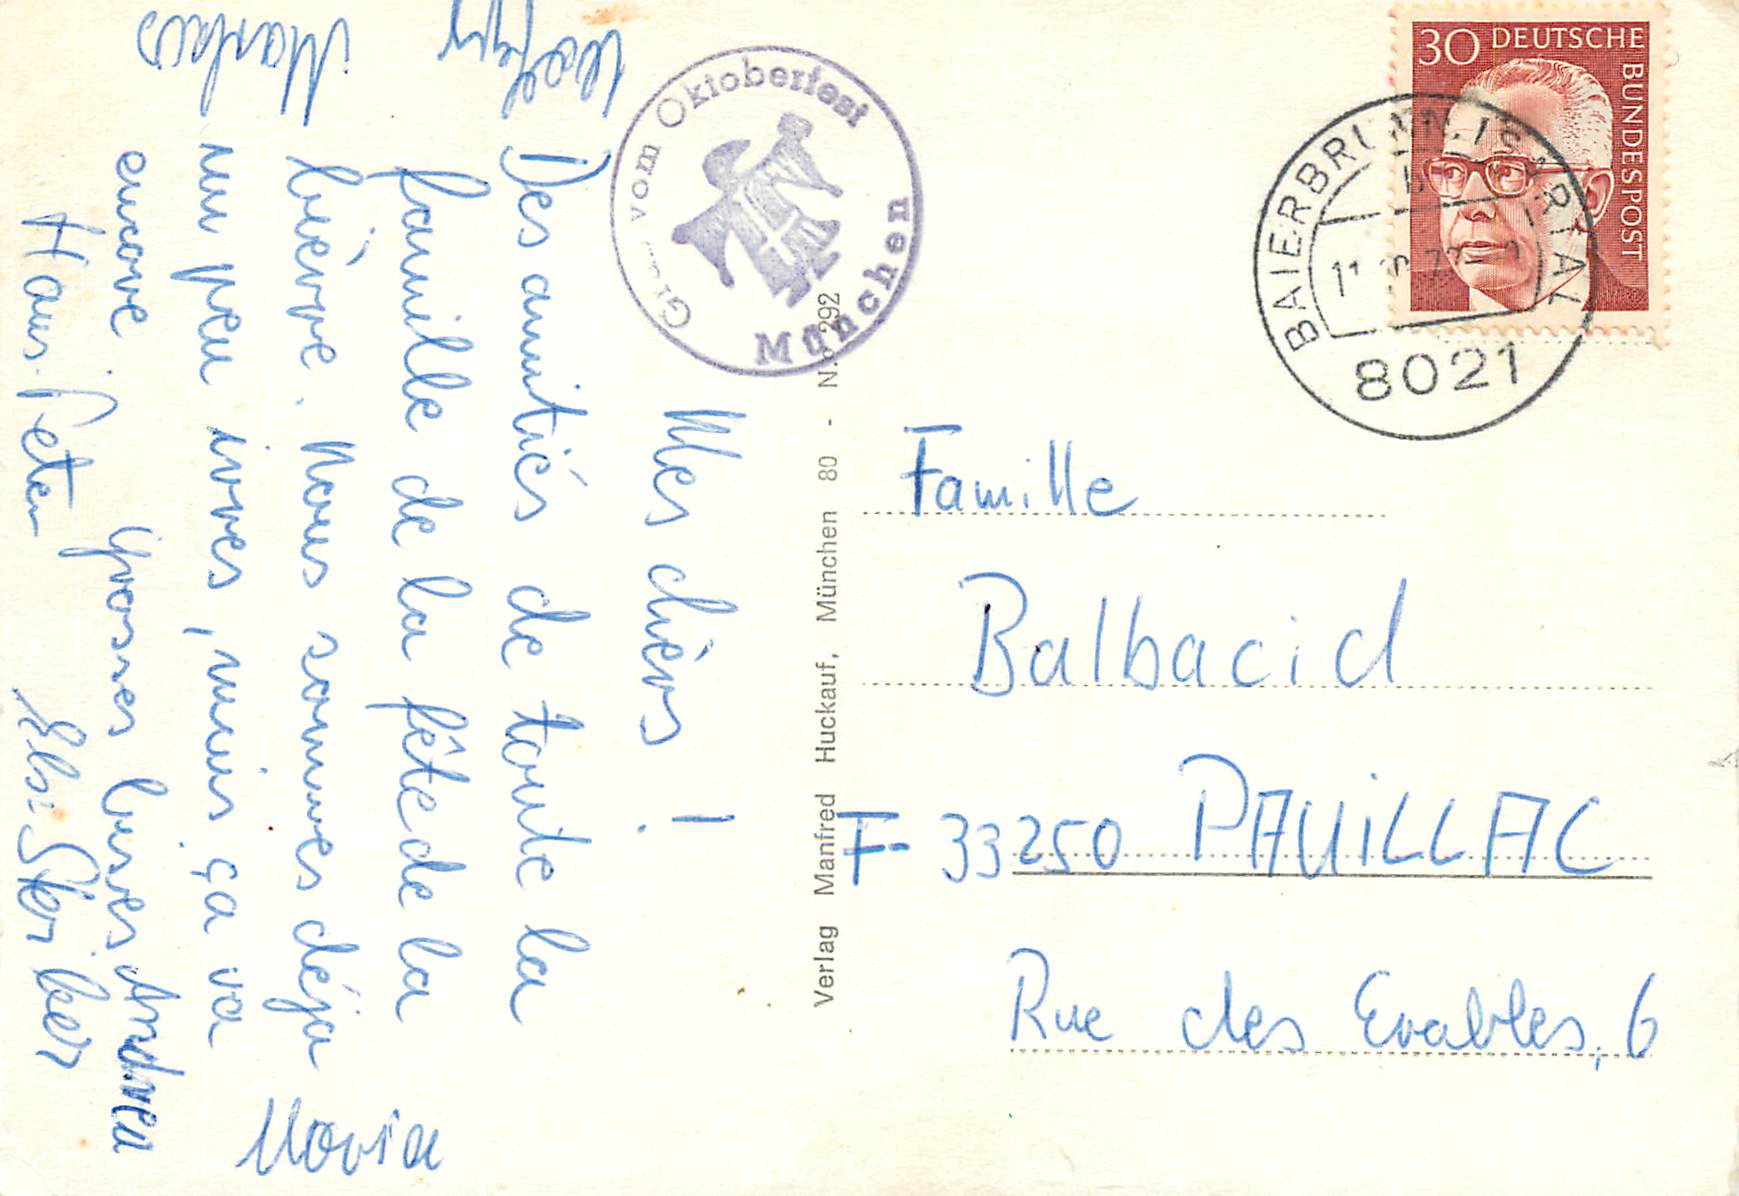 Mes chèrs !
Des amitiés de toute la
famille de la fête de la
bièrre. Nous sommes déja
un peu ivres, mais ça va
encore. Grosses bises Andrea
Hans-Peter Elsi
Maria
Markus
Wolfgang
vom Oktoberfest
München
Verlag Manfred Huckauf, München 80 - N. 292
30 DEUTSCHE
BUNDESPOST
BAIERBRUNN, ISARTAL
8021
Famille
Balbacid
F-33250 PAUILLAC
Rue des Erables, 6